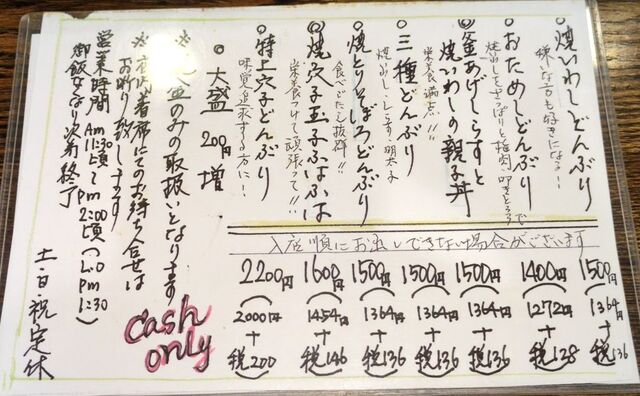 ○焼いわしどんぶり
嫌いな方も好きになる!
1500円
(1364円
+
税136)
○おためしどんぶり
1400円
(1272円
+
税128)
○釜あげしらすと
焼いわしの親子丼
栄養満点!!
1500円
(1364円
+
税136)
○三種どんぶり
焼いわし・しらす・明太子
1500円
(1364円
+
税136)
○焼とりそぼろどんぶり
食べごたえ抜群!!
1500円
(1364円
+
税136)
○焼穴子玉子ふはふは
栄養つけて頑張って!!
1600円
(1454円
+
税146)
○特上穴子どんぶり
味覚追求する方に!
2200円
(2000円
+
税200)
○大盛 200円増
入店順にお出しできない場合がございます
現金のみの取扱いとなります
※店内着席にてのお待ち合せは
お断り致します
営業時間 Am11:30頃~pm2:00頃(L.O pm1:30)
御飯なくなり次第終了
土・日・祝定休
cash
only